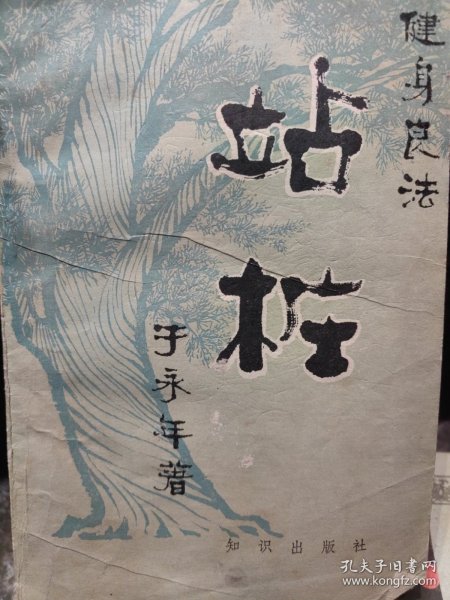 健身良法
站桩
于永年著
知识出版社
孔夫子旧书网
www.kongfz.com